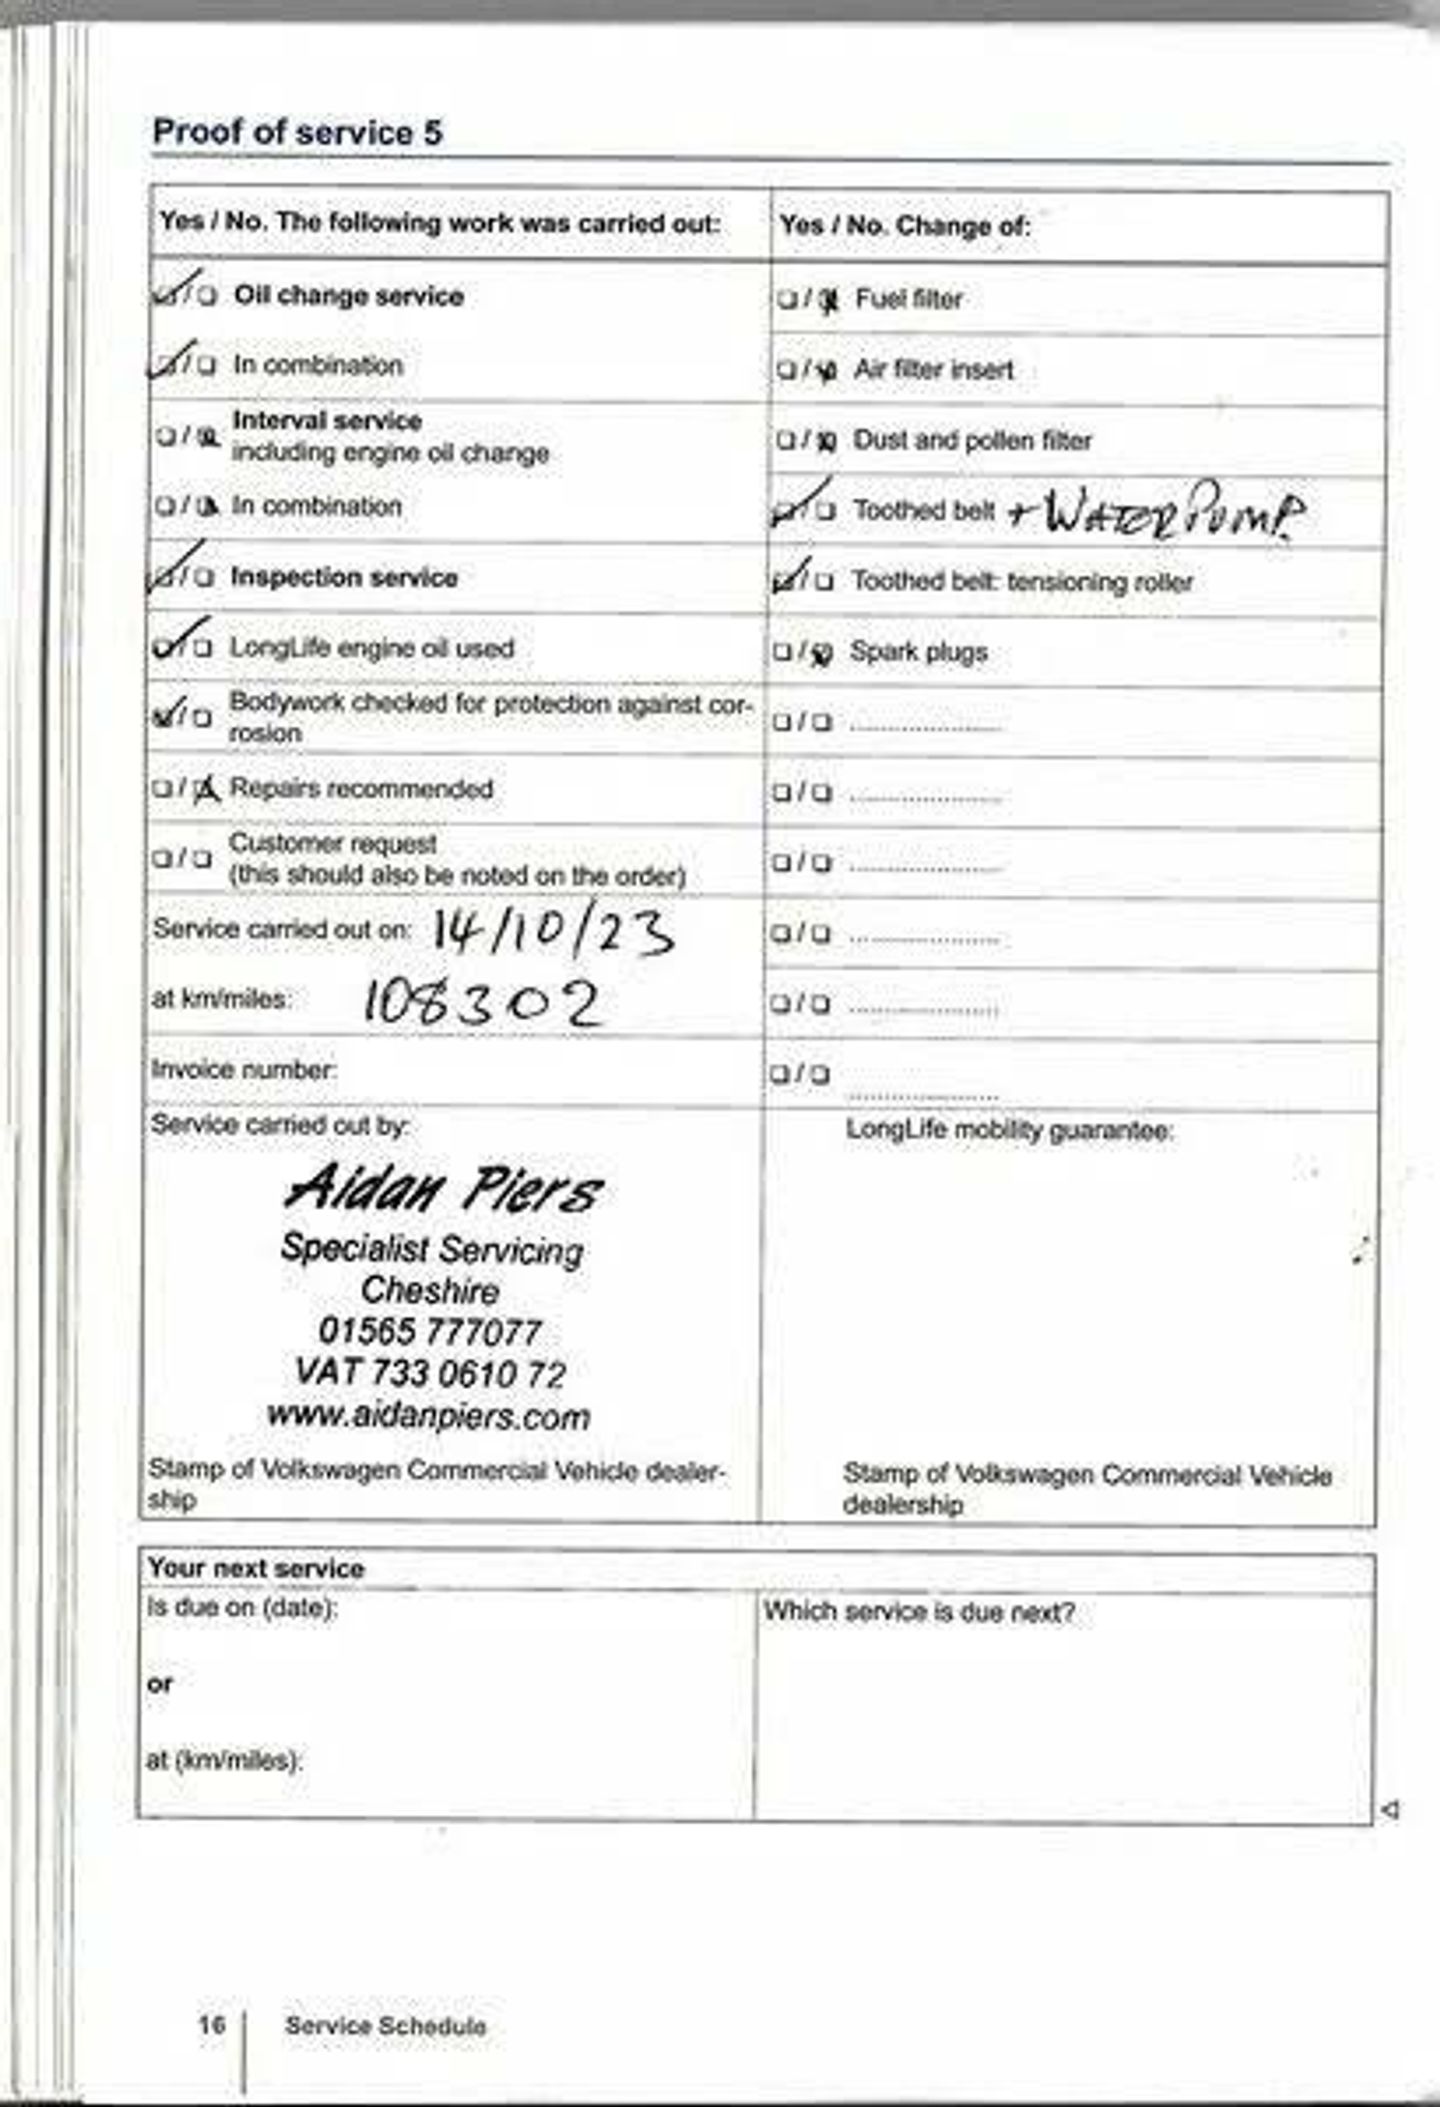 Proof of service 5
Yes / No. The following work was carried out:
❑ / ❑ Oil change service
❑ / ❑ In combination
❑ / ❑ Interval service
including engine oil change
❑ / ❑ In combination
❑ / ❑ Inspection service
❑ / ❑ LongLife engine oil used
❑ / ❑ Bodywork checked for protection against cor-
rosion
❑ / ❑ Repairs recommended
❑ / ❑ Customer request
(this should also be noted on the order)
Service carried out on: 14/10/23
at km/miles: 108302
Invoice number:
Service carried out by:
Aidan Piers
Specialist Servicing
Cheshire
01565 777077
VAT 733 0610 72
www.aidanpiers.com
Stamp of Volkswagen Commercial Vehicle dealer-
ship
Yes / No. Change of:
❑ / ❑ Fuel filter
❑ / ❑ Air filter insert
❑ / ❑ Dust and pollen filter
❑ / ❑ Toothed belt + WATER PUMP.
❑ / ❑ Toothed belt: tensioning roller
❑ / ❑ Spark plugs
❑ / ❑ ......................
❑ / ❑ ......................
❑ / ❑ ......................
❑ / ❑ ......................
❑ / ❑ ......................
❑ / ❑ ......................
LongLife mobility guarantee:
Stamp of Volkswagen Commercial Vehicle
dealership
Your next service
Is due on (date):
or
at (km/miles):
Which service is due next?
16 Service Schedule